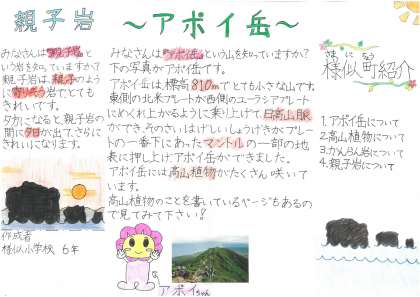 親子岩
みなさんは親子岩と
いう岩を知っていますか?
親子岩は、親子のよう
に寄りそう岩でとても
きれいです。
夕方になると親子岩の
間に夕日が出て、さらに
きれいになります。
作成者
様似小学校 6年
～アポイ岳～
みなさんは「アポイ岳」という山を知っていますか?
下の写真がアポイ岳です。
アポイ岳は標高810mでとても小さな山です。
東側の北米プレートが西側のユーラシアプレート
にめくれ上がるように乗り上げて日高山脈
ができ、そのさいはげしいしょうげきがプレート
の一番下にあったマントルの一部の地
表に押し上げアポイ岳ができました。
アポイ岳には高山植物がたくさん咲いて
います。
高山植物のことを書いているページもあるの
で見てみて下さい!
アポイちゃん
さまに ちょう
様似町紹介
1.アポイ岳について
2.高山植物について
3.かんらん岩について
4.親子岩について